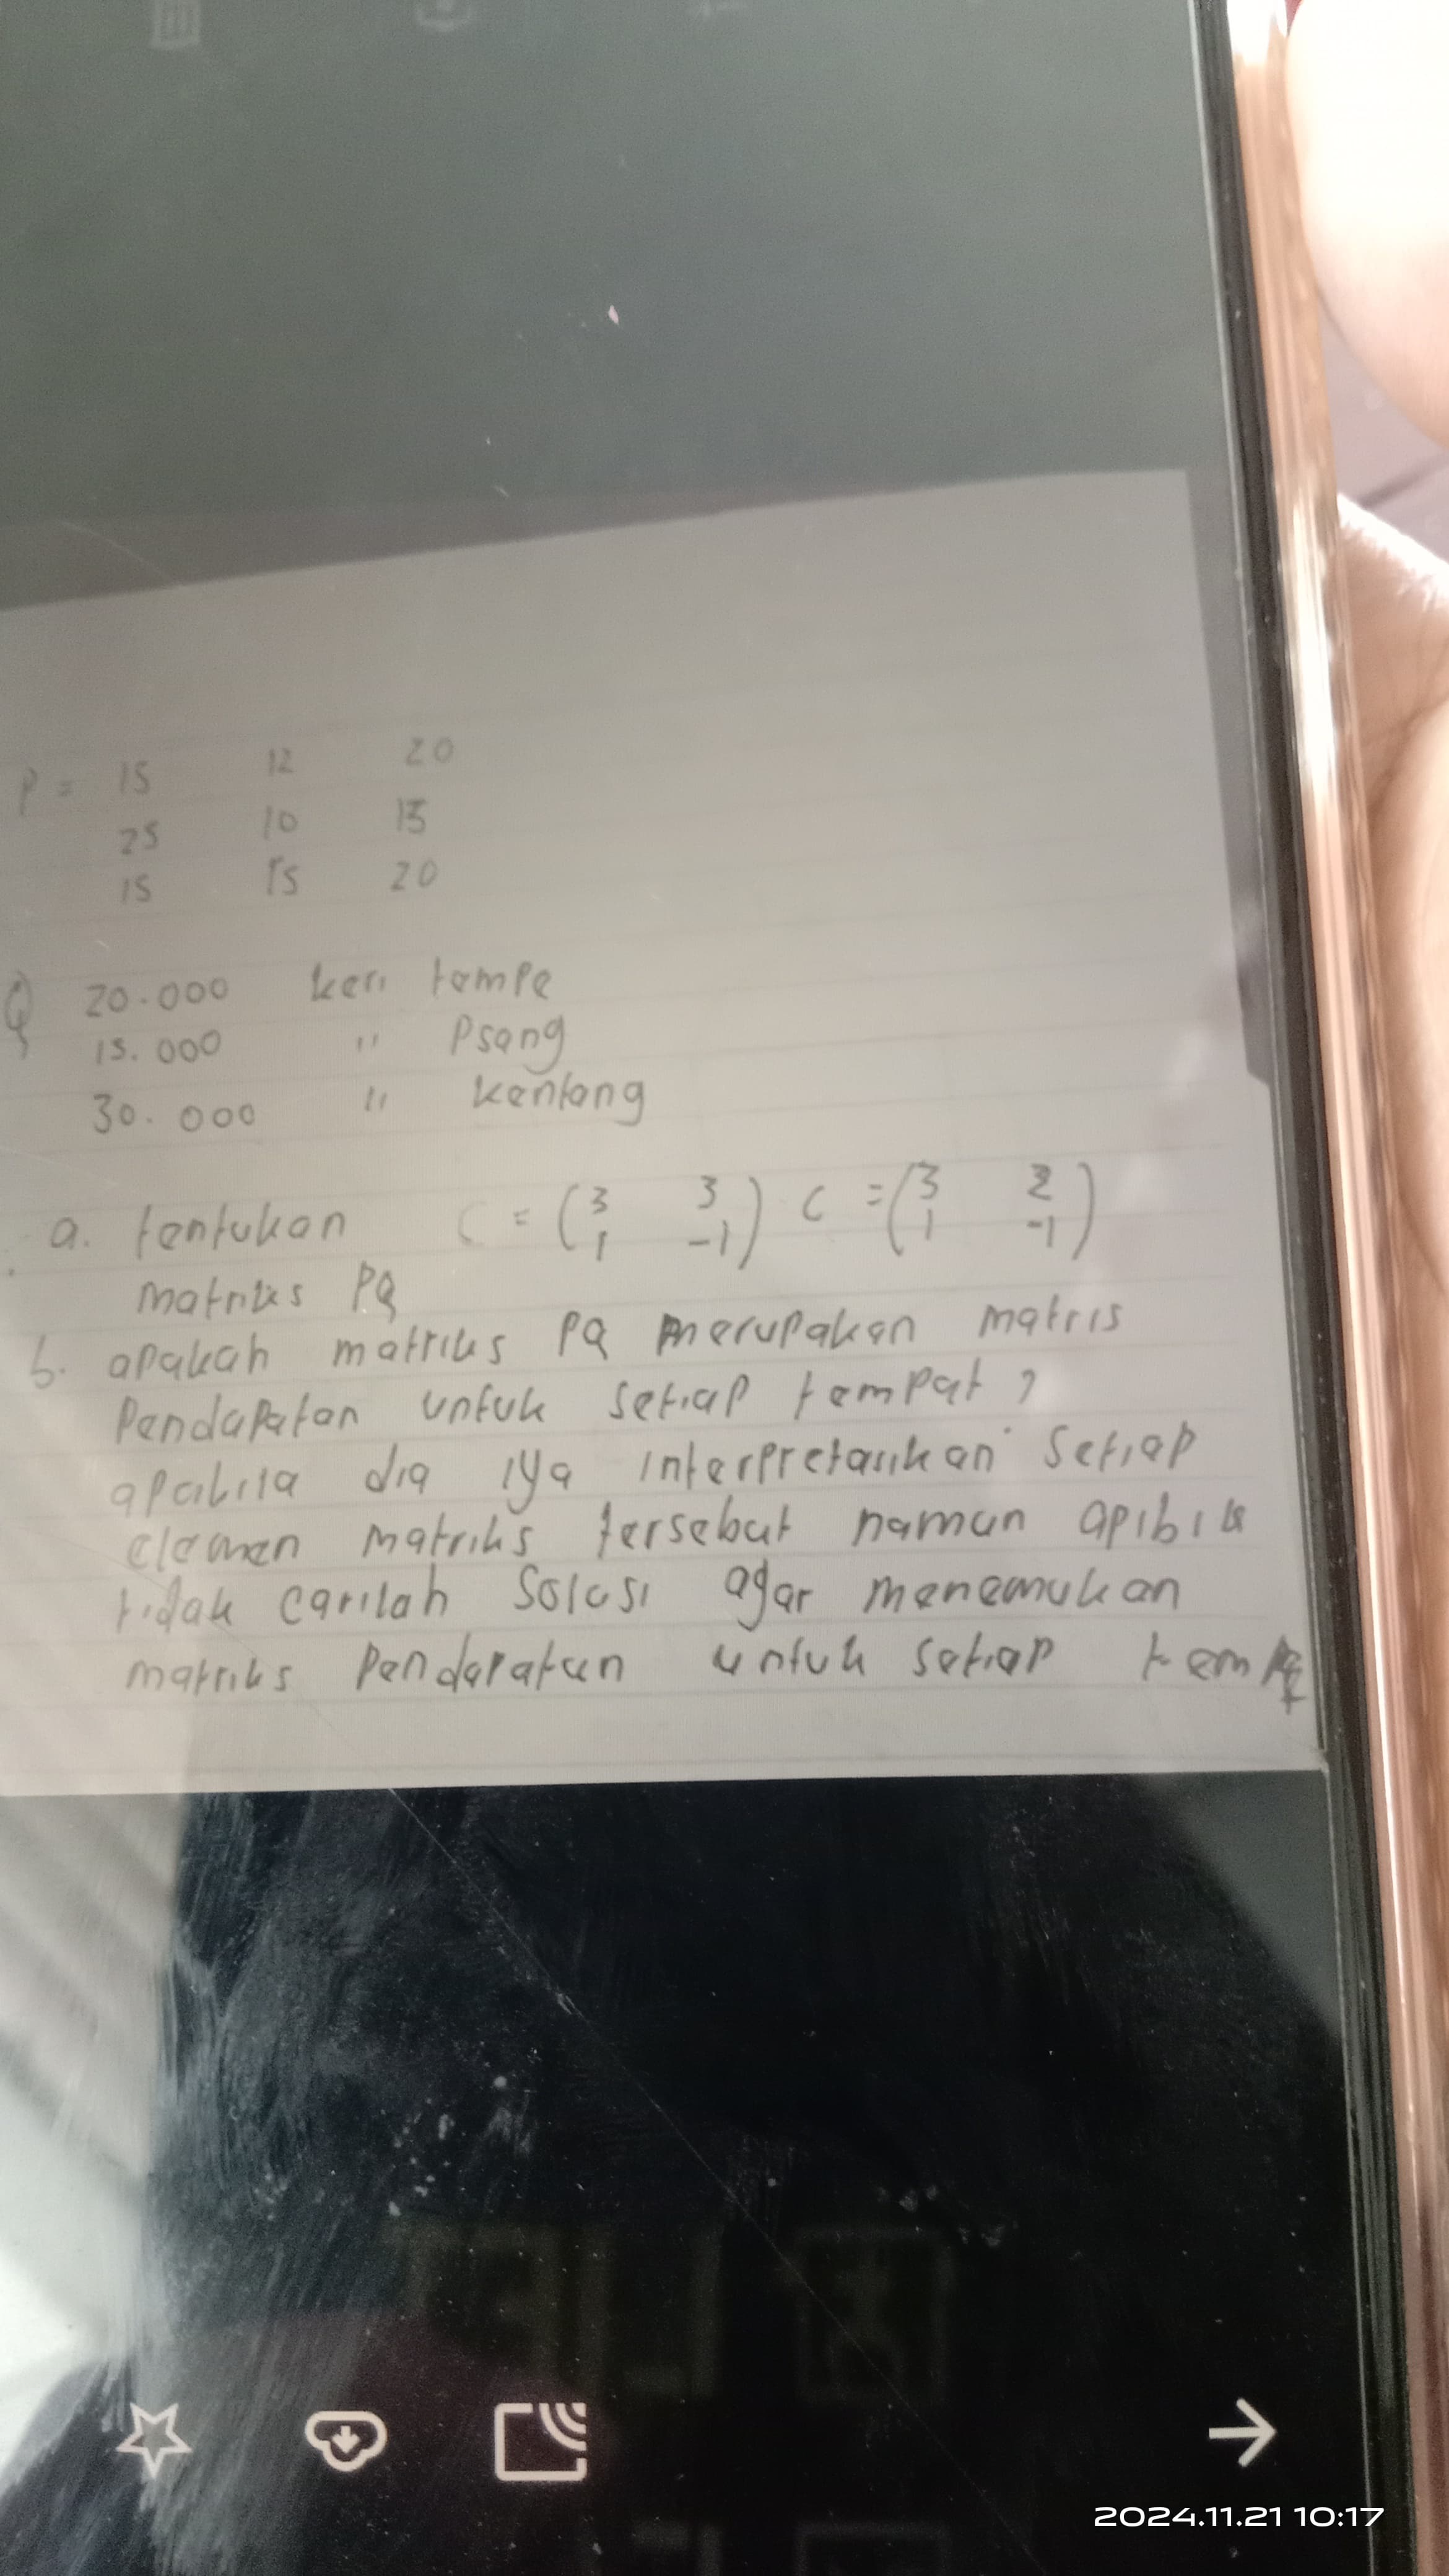 P = 15 12 20
25 10 15
15 15 20
Q 20.000 keri tempe
15.000 " Psang
30.000 " kentang
a. tentukan C = (3 3 C = (3 2
1 -1) 1 -1)
matriks PQ
b. apakah matriks PQ merupakan matris
Pendapatan untuk setiap tempat ?
apabila dia iya interpretasikan setiap
elemen matriks tersebut namun apibila
tidak carilah Solusi agar menemukan
matriks Pendapatan untuk setiap
2024.11.21 10:17